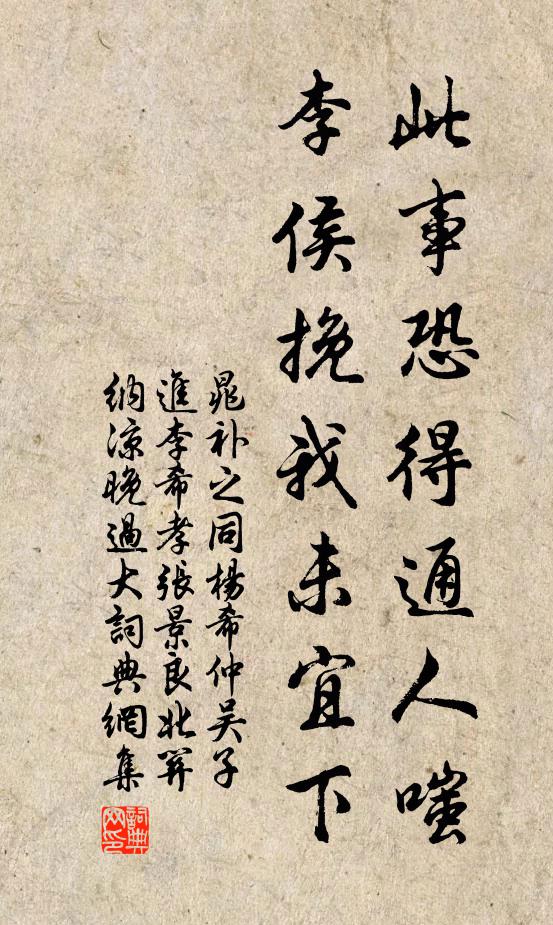 此事恐得通人嗤
李侯挽我未宜下
晁补之同楊希仲吴子
進李希孝張景良北箅
納凉晚過大詞典網集
詞典网印